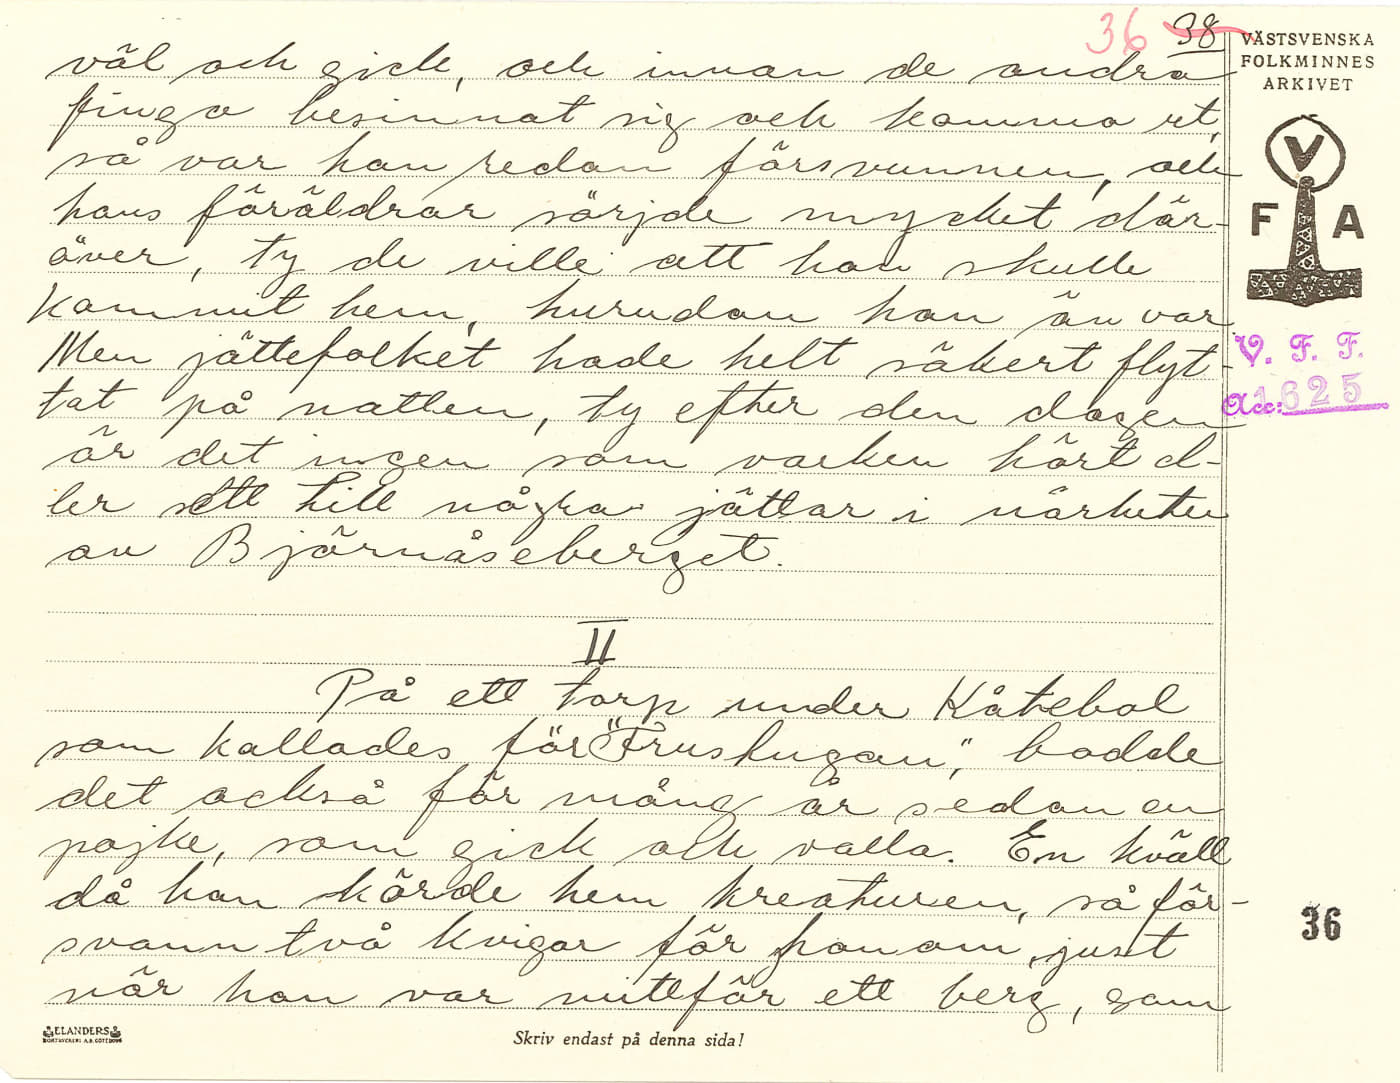 36 38
VÄSTSVENSKA
FOLKMINNES
ARKIVET
V
F A
V. F. F.
Acc: 1625
väl och gick, och innan de andra
fingo besinnat sig och komma ut,
så var han redan försvunnen, och
hans föräldrar sörjde mycket där-
över, ty de ville att han skulle
kommit hem, hurudan han än var
Men jättefolket hade helt säkert flyt-
tat på natten, ty efter den dagen
är det ingen som varken hört el-
ler sett till några jättar i närheten
av Björnåseberget.
II
På ett torp under Kåtebol
som kallades för "Frustugan", bodde
det också för mång år sedan en
pojke, som gick och valla. En kväll
då han körde hem kreaturen, så för-
svann två kvigor för honom, just
när han var mittför ett berg, som
36
ELANDERS
BOKTRYCKERI A.B. GÖTEBORG
Skriv endast på denna sida!